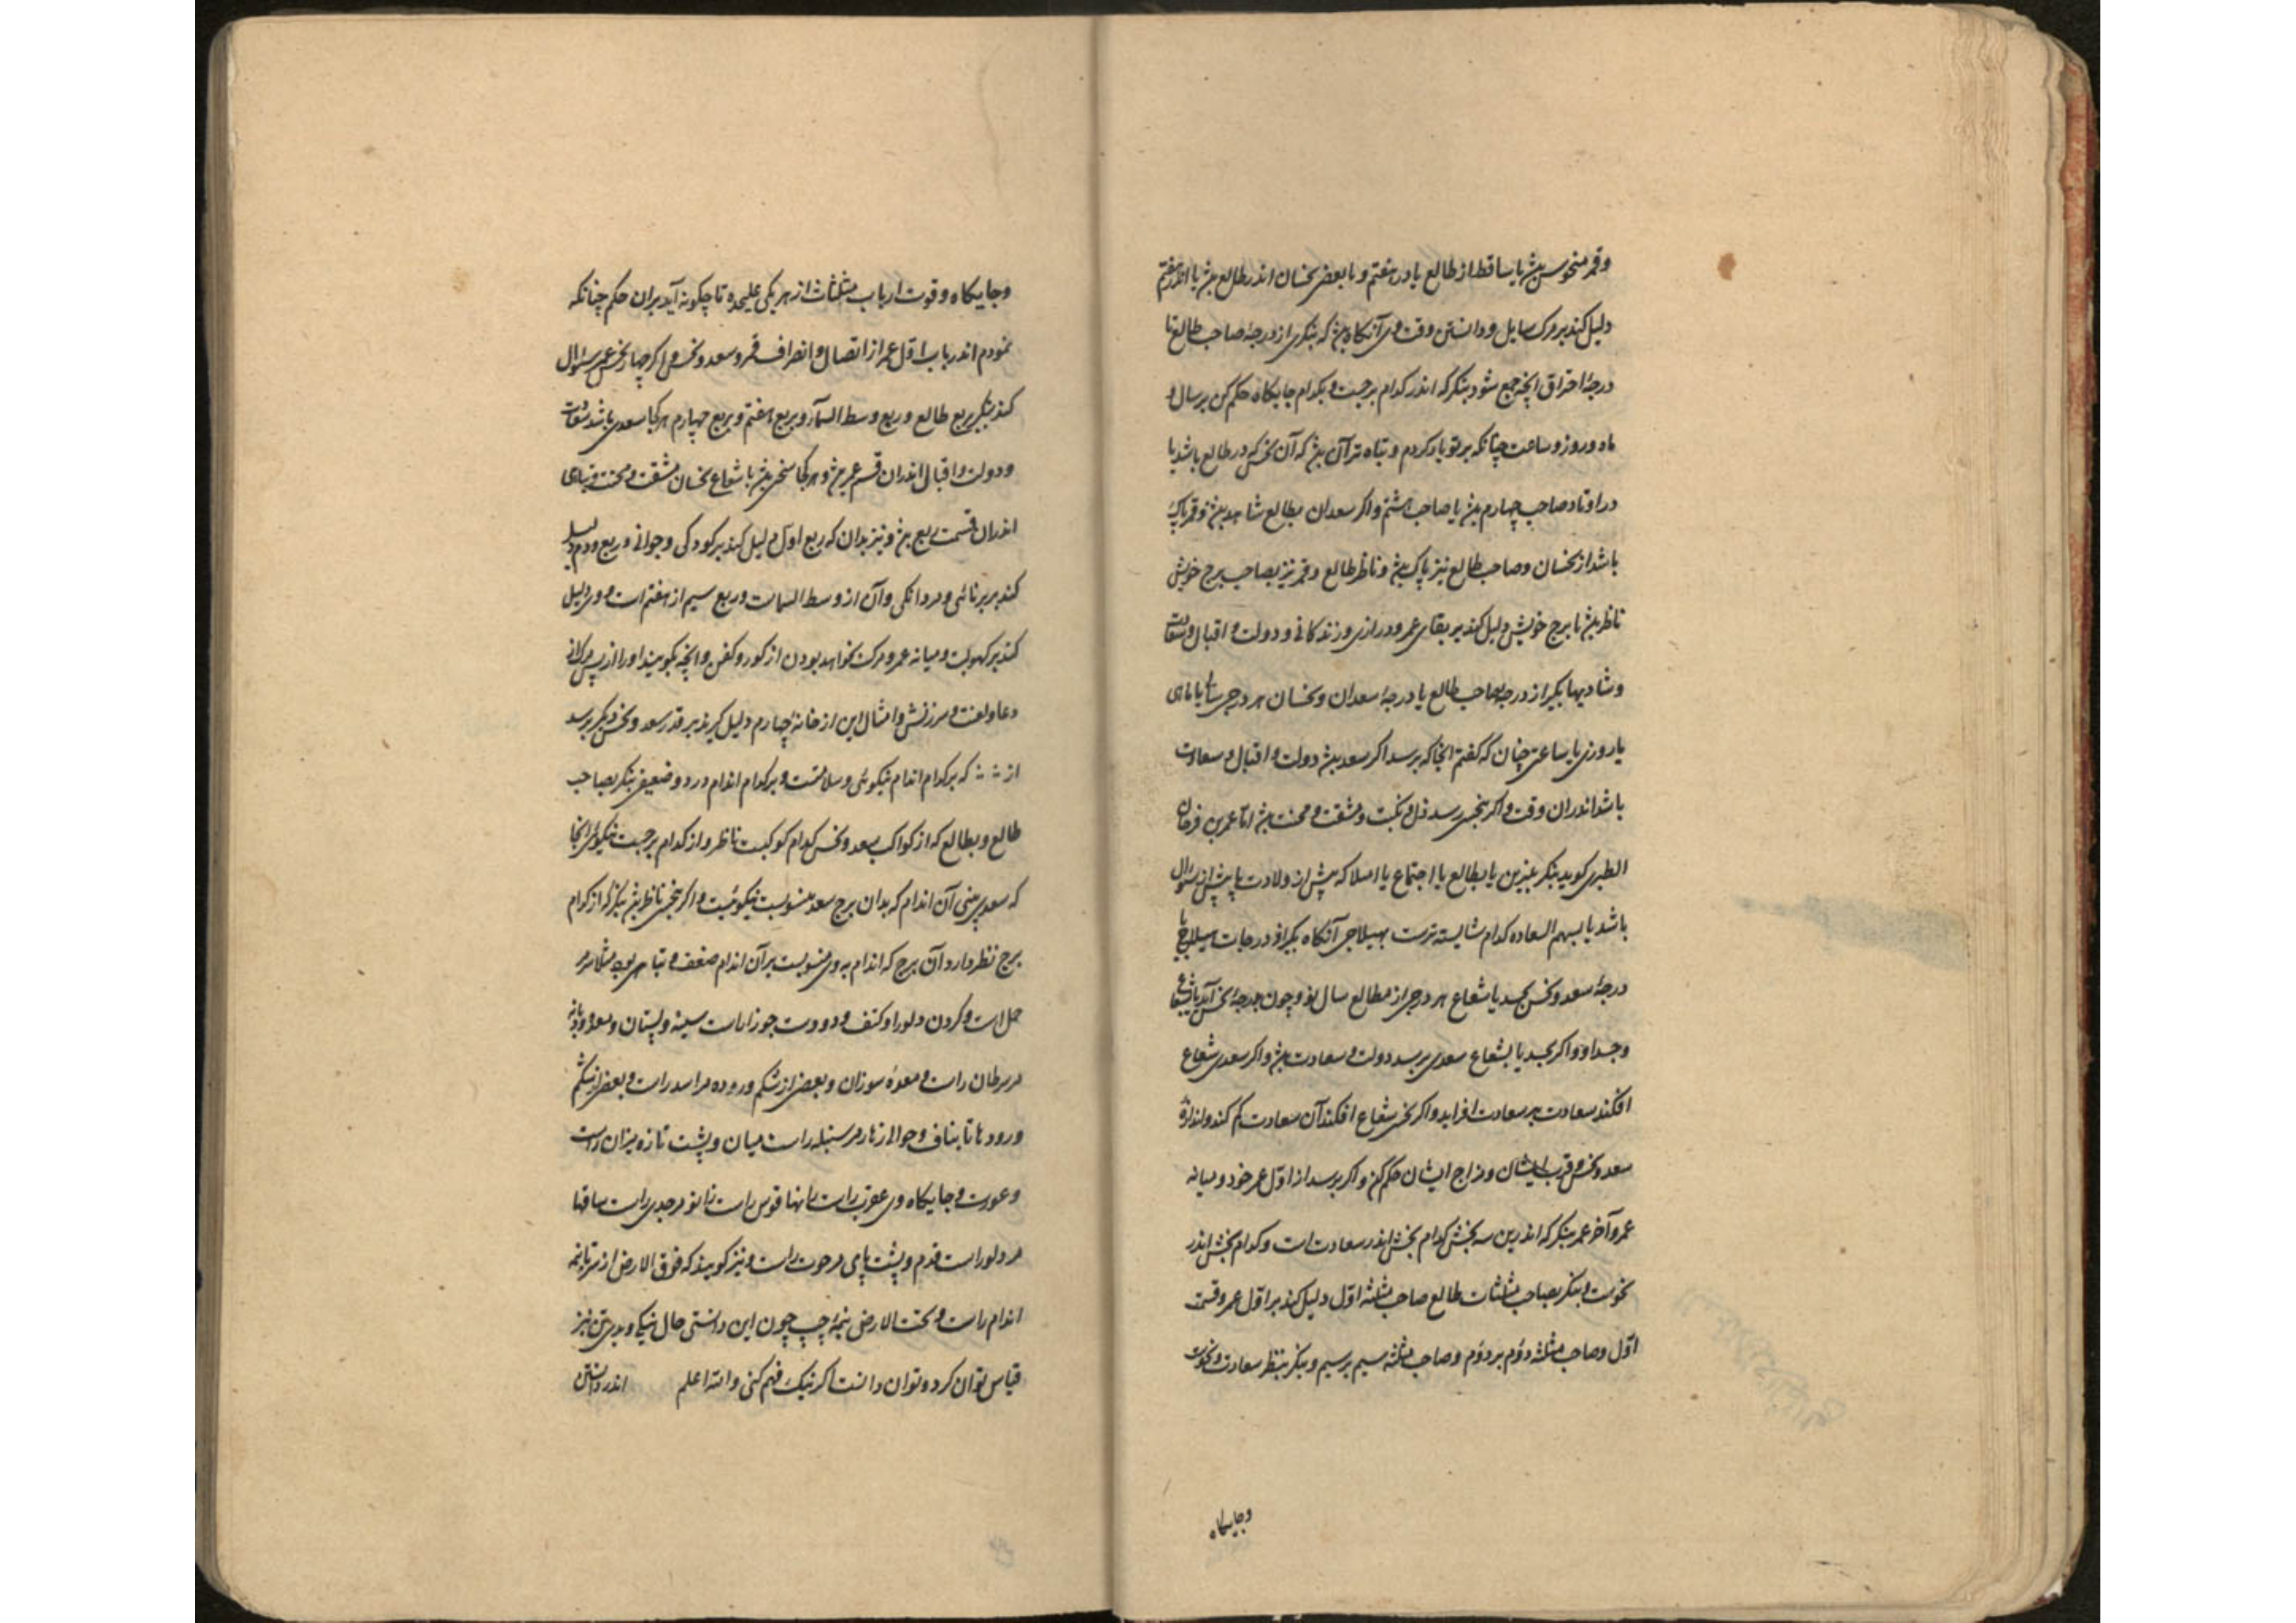 وقمر منحوس بیش یا ساقط از طالع یا در هفتم و یا بعضی نحسان اندر طالع بیش یا اندر هفتم
دلیل کند بر مرک سایل و دانستن وقت وی آنکاه بیش که بنکری از درجهٔ صاحب طالع تا
درجهٔ احتراق آنچه جمع شود بنکر که اندر کدام برجست و بکدام جایکاه حکم کن بر سال و
ماه و روز و ساعت چنانکه بر تو یاد کردم و تباه تر آن بیش که آن نحس که در طالع باشد یا
در اوتاد صاحب چهارم بیش یا صاحب هشتم و اکر سعدان بطالع شاهد بیش و قمر پاک
باشد از نحسان و صاحب طالع نیز پاک بیش و ناظر طالع و قمر نیز بصاحب برج خویش
ناظر بیش یا برج خویش دلیل کند بر بقای عمر و درازی و زندکانی و دولت و اقبال و سعادت
و شادیها بکیر از درجه صاحب طالع یا درجهٔ سعدان و نحسان هر درجی سالی یا ماهی
یا روزی یا ساعتی چنان که کفتم آنجا که برسد اکر سعد بیش دولت و اقبال و سعادت
باشد اندران وقت و اکر بنحس رسد ذل و نکبت و مشقت و محنت بیش اما عمر بن فرخان
الطبری کوید بنکر بنیرین یا بطالع یا اجتماع یا امتلا که پیش از ولادت یا پیش از سوال
باشد یا بسهم السعاده کدام شایسته ترست بهیلاجی آنکاه بکیر از درجات هیلاج تا
درجهٔ سعد و نحس بجسد یا شعاع هر درجی از مطالع سال نو و چون بدرجهٔ نحس آید یا شعاع
وجسد او و اکر بجسد یا بشعاع سعدی برسد دولت و سعادت بیش و اکر سعدی شعاع
افکند سعادت بر سعادت افزاید و اکر نحس شعاع افکند آن سعادت کم کند و اندازهٔ
سعد و نحس و قرب ایشان و مزاج ایشان حکم کن و اکر پرسد از اول عمر خود و میانه
عمر و آخر عمر بنکر که اندرین سه بخش کدام بخش اندر سعادت است و کدام بخش اندر
نحوست و بنکر بصاحب مثلثات طالع صاحب مثلثه اول دلیل کند بر اول عمر و قسمت
اول و صاحب مثلثه دوم بر دوم و صاحب مثلثه سیم بر سیم و بنکر بنظر سعادت و نحوست
وجایکاه
وجایکاه و قوت ارباب مثلثات از هر یکی علیحده تا چکونه آید بران حکم چنانکه
نمودم اندر باب اول عمر از اتصال و انصراف قمر و سعد و نحس و اکر چهار بخش عمر سئوال
کند بنکر بربع طالع و ربع وسط السماء و بربع هفتم و بربع چهارم هر کجا سعدی باشد سعادت
و دولت و اقبال اندران قسم عمر بیش و هر کجا نحس بیش یا شعاع نحسان مشقت و محنت و تباهی
اندران قسمت ربع بیش و نیز بدان که ربع اول دلیل کند بر کودکی و جوانی و ربع دوم دلیل
کند بر برنائی و مردانکی و آن از وسط السماست و ربع سیم از هفتم است و وی دلیل
کند بر کهولت و میانه عمر و مرک نخواهد بودن از کور و کفن و آنچه بکویند او را از پس مرک از
دعا و لعنت و سرزنش و امثال این از خانهٔ چهارم دلیل کیرند بر قدر سعد و نحس دیکر پرسد
از که بر کدام اندام نیکوئی و سلامتست و بر کدام اندام درد و ضعیفی بنکر بصاحب
طالع و بطالع که از کواکب سعد و نحس کدام کوکبست ناظر و از کدام برجست نیکوئی آنجا
که سعد بینی آن اندام که بدان برج سعد منسوبست نیکوئیست و اکر نحس ناظر بیش بنکر که از کدام
برج نظر دارد آن برج که اندام بوی منسوبست بر آن اندام ضعف و تباهی بود مثلا سر
حمل است و کردن و کتف و دو دست جوزا راست سینه و پستان و معده
مر سرطان راست و معدهٔ سوزان و بعضی از شکم و روده مر اسد راست و بعضی از شکم
و رودها تا بناف و حوالی زهار مر سنبله راست میان و پشت تا زه میزان راست
و عورت و جایکاه وی عقرب راست رانها قوس راست زانو مر جدی راست ساقها
مر دلو راست قدم و پشت پای مر حوت راست و نیز کویند که فوق الارض از سر تا نیمه
اندام راست و تحت الارض نیمهٔ چپ چون این دانستی حال نیکی و بدی تن نیز
قیاس توان کرد و توان دانست اکر نیک فهم کنی والله اعلم اندر دانستن